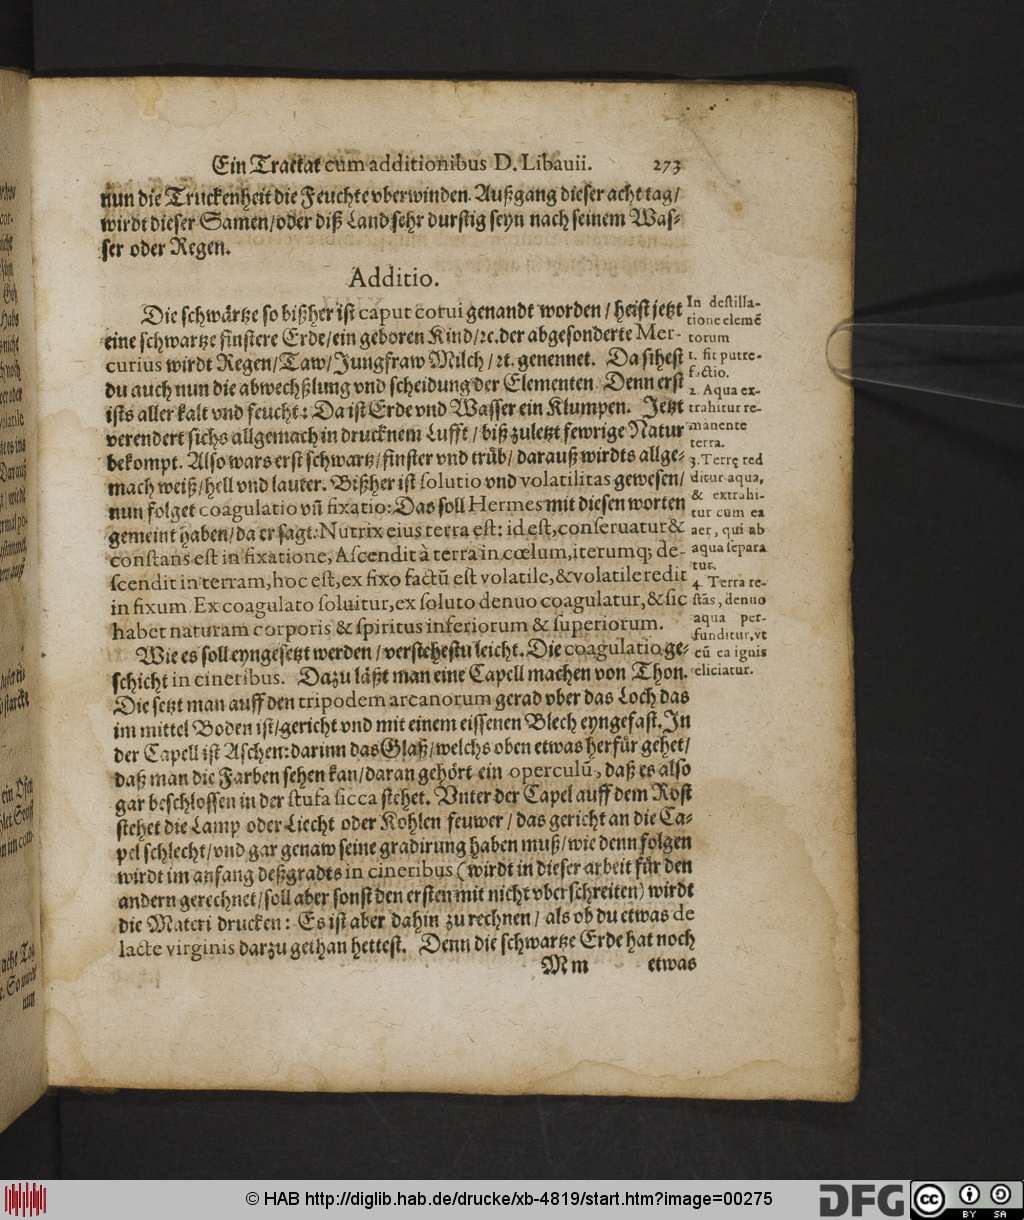 Ein Tractat cum additionibus D. Libavii. 273
nun die Truckenheit die Feuchte vberwinden. Außgang dieser acht tag/
wirdt dieser Samen/oder diß Land sehr durstig seyn nach seinem Was-
ser oder Regen.
Additio.
Die schwärtze so bißher ist caput corui genandt worden/heist jetzt
eine schwartze finstere Erde/ein geboren Kind/ꝛc. der abgesonderte Mer-
curius wirdt Regen/Taw/Jungfraw Milch/ꝛc. genennet. Da sihest
du auch nun die abwechßlung vnd scheidung der Elementen. Denn erst
ists aller kalt vnd feucht: Da ist Erde vnd Wasser ein Klumpen. Jetzt
verendert sichs allgemach in drucknem Lufft/biß zuletzt fewrige Natur
bekompt. Also wars erst schwartz/finster vnd trüb/darauß wirdts allge-
mach weiß/hell vnd lauter. Bißher ist solutio vnd volatilitas gewesen/
nun folget coagulatio vñ fixatio: Das soll Hermes mit diesen worten
gemeint haben/da er sagt: Nutrix eius terra est: id est, conseruatur &
constans est in fixatione, Ascendit à terra in cœlum, iterumq; de-
scendit in terram, hoc est, ex fixo factũ est volatile, & volatile redit
in fixum. Ex coagulato soluitur, ex soluto denuo coagulatur, & sic
habet naturam corporis & spiritus inferiorum & superiorum.
Wie es soll eyngesetzt werden/verstehestu leicht. Die coagulatio ge-
schicht in cineribus. Dazu läßt man eine Capell machen von Thon.
Die setzt man auff den tripodem arcanorum gerad vber das Loch das
im mittel Boden ist/gericht vnd mit einem eissenen Blech eyngefast. In
der Capell ist Aschen: darinn das Glaß/welchs oben etwas herfür gehet/
daß man die Farben sehen kan/daran gehört ein operculũ, daß es also
gar beschlossen in der stufa sicca stehet. Vnter der Capel auff dem Rost
stehet die Lamp oder Liecht oder Kohlen feuwer/das gericht an die Ca-
pel schlecht/vnd gar genaw seine gradirung haben muß/wie denn folgen
wirdt im anfang deß gradts in cineribus (wirdt in dieser arbeit für den
andern gerechnet/soll aber sonst den ersten mit nicht vberschreiten) wirdt
die Materi drucken: Es ist aber dahin zu rechnen/als ob du etwas de
lacte virginis darzu gethan hettest. Denn die schwartze Erde hat noch
Mm etwas
In destilla-
tione elemẽ
torum
1. fit putre-
factio.
2. Aqua ex-
trahitur re-
manente
terra.
3. Terrę red
ditur aqua,
& extrahi-
tur cum ea
aer, qui ab
aqua separa
tur.
4. Terra re-
stãs, denuo
aqua per-
funditur, vt
cũ ea ignis
eliciatur.
© HAB http://diglib.hab.de/drucke/xb-4819/start.htm?image=00275
DFG
cc BY SA